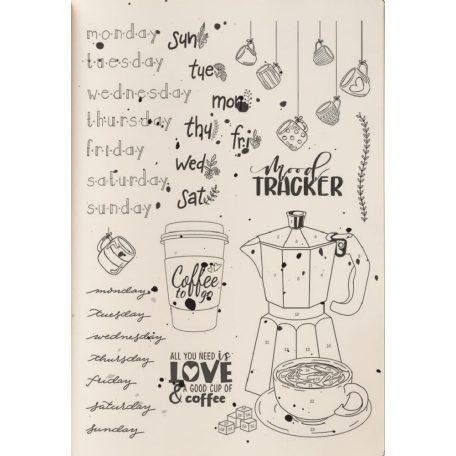 monday
tuesday
wednesday
thursday
friday
saturday
sunday
sun
tue
mon
thy
fri
wed
sat
mood
TRACKER
Coffee
to go
monday
tuesday
wednesday
thursday
friday
saturday
sunday
ALL YOU NEED is
LOVE
& A GOOD CUP OF
coffee